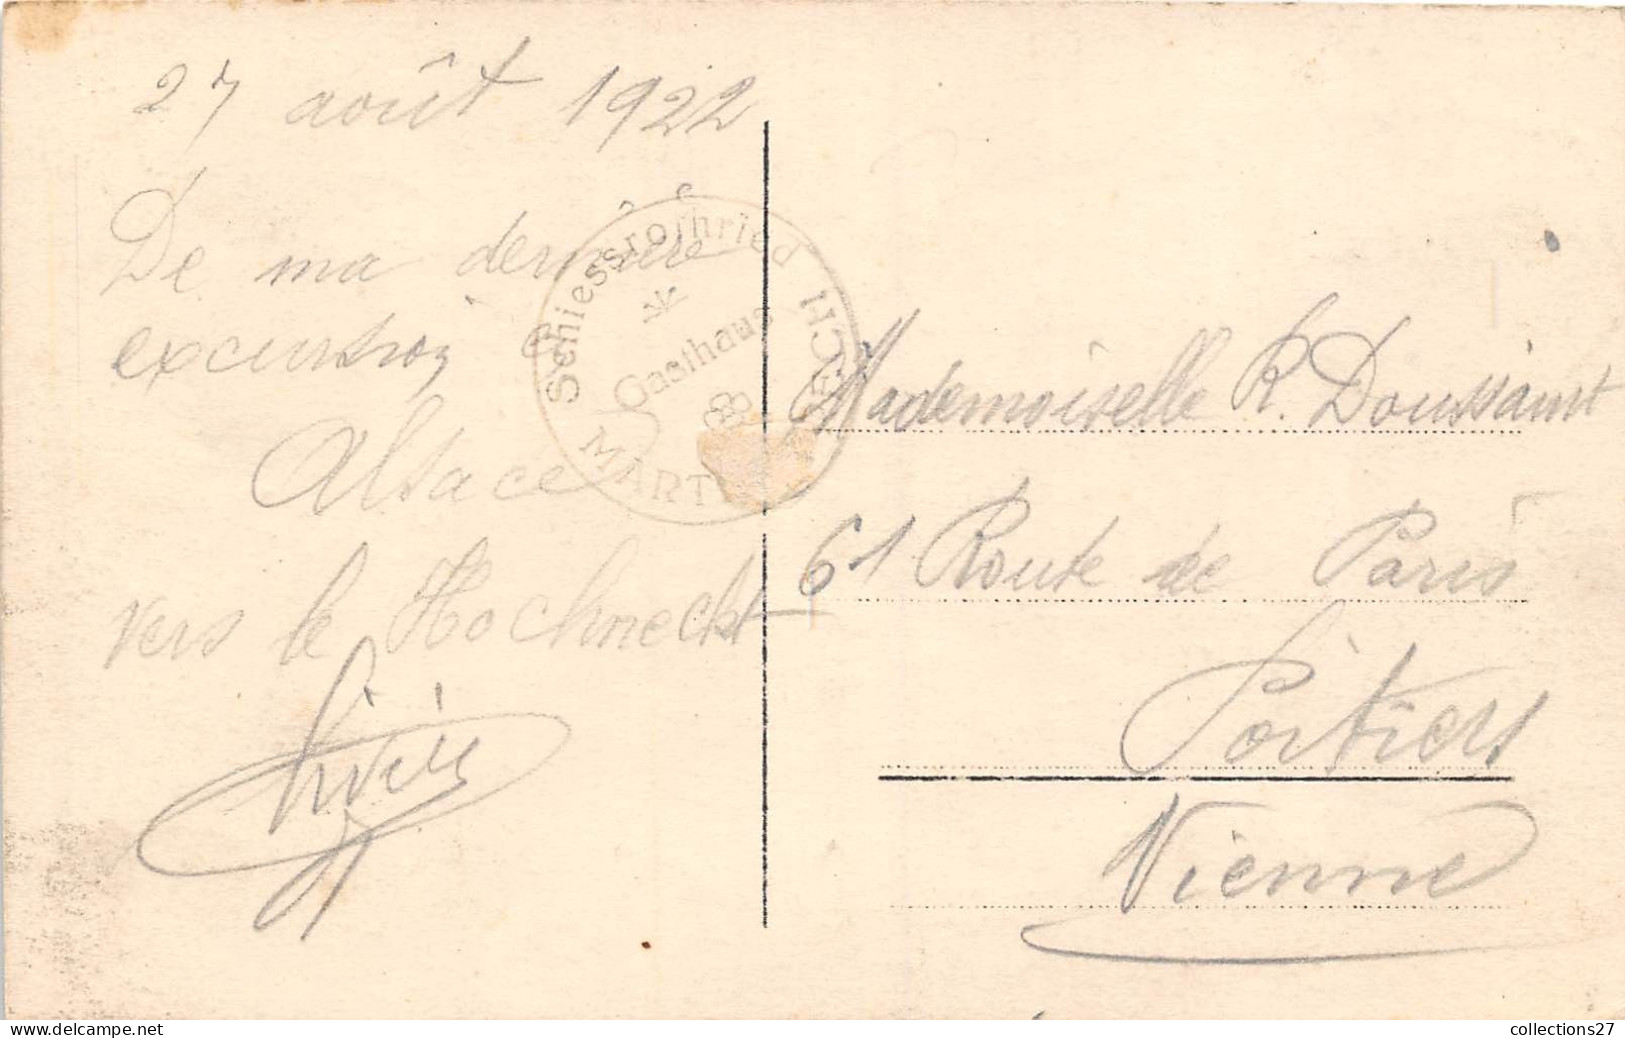 27 août 1922
De ma dernière
excursion
Alsace
vers le Hochneckt
Schiessrothried
Gasthaus
MART
Mademoiselle R. Doussaint
61 Route de Paris
Poitiers
Vienne
collections27